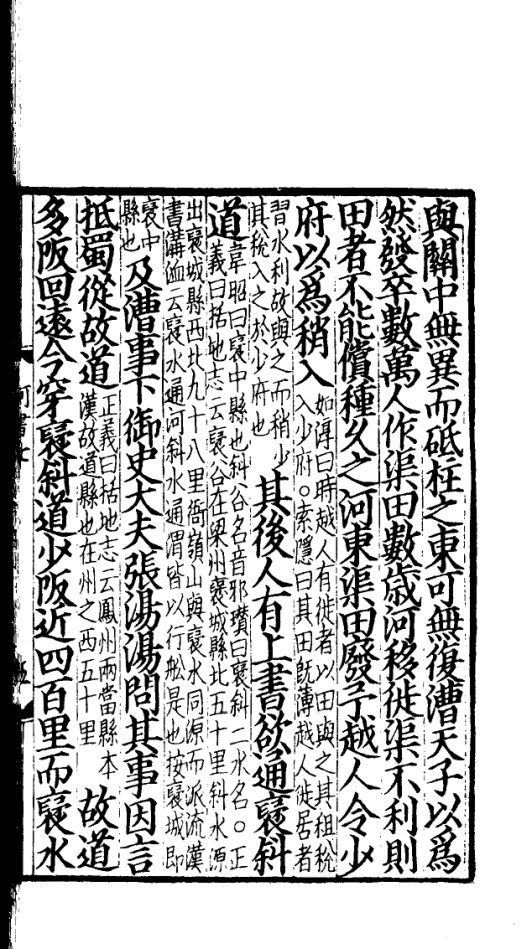 與關中無異而砥柱之東可無復漕天子以爲
然發卒數萬人作渠田數歳河移徙渠不利則
田者不能償種久之河東渠田廢予越人令少
府以爲稍入
如淳曰時越人有徙者以田與之其租稅
入少府。索隱曰其田旣薄越人徙居者
習水利故與之而稍少
其稅入之於少府也
其後人有上書欲通襃斜
道
韋昭曰襃中縣也斜谷名音邪瓚曰襃斜二水名。正
義曰括地志云襃谷在梁州襃城縣北五十里斜水源
出襃城縣西北九十八里衙嶺山與襃水同源而派流漢
書溝洫云襃水通河斜水通渭皆以行舩是也按襃城即
襃中
縣也
及漕事下御史大夫張湯湯問其事因言
抵蜀從故道
正義曰括地志云鳳州兩當縣本
漢故道縣也在州之西五十里
故道
多阪回遠今穿襃斜道少阪近四百里而襃水